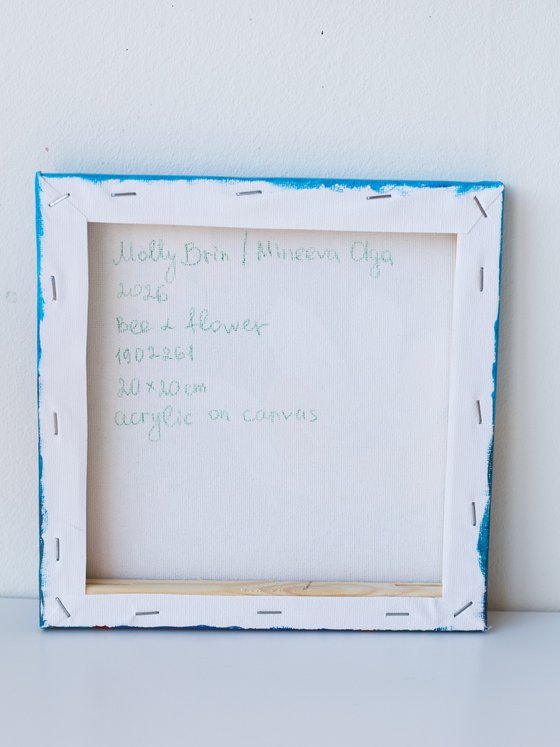 Molly Brin / Mineeva Olga
2026
Bee & flower
1902261
20×20 cm
acrylic on canvas